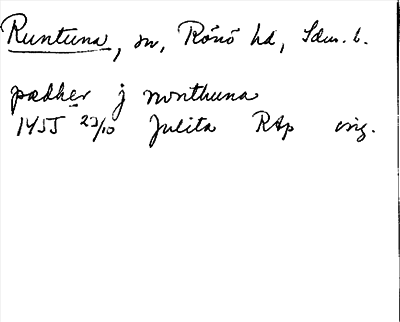 Runtuna, sn, Rönö hd, Sdm. l.
pædher j rwnthuna
1455 23/10 Julita RAp orig.